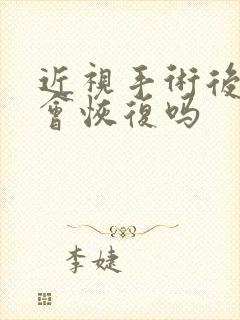 近視手術後
會恢復吗
李婕